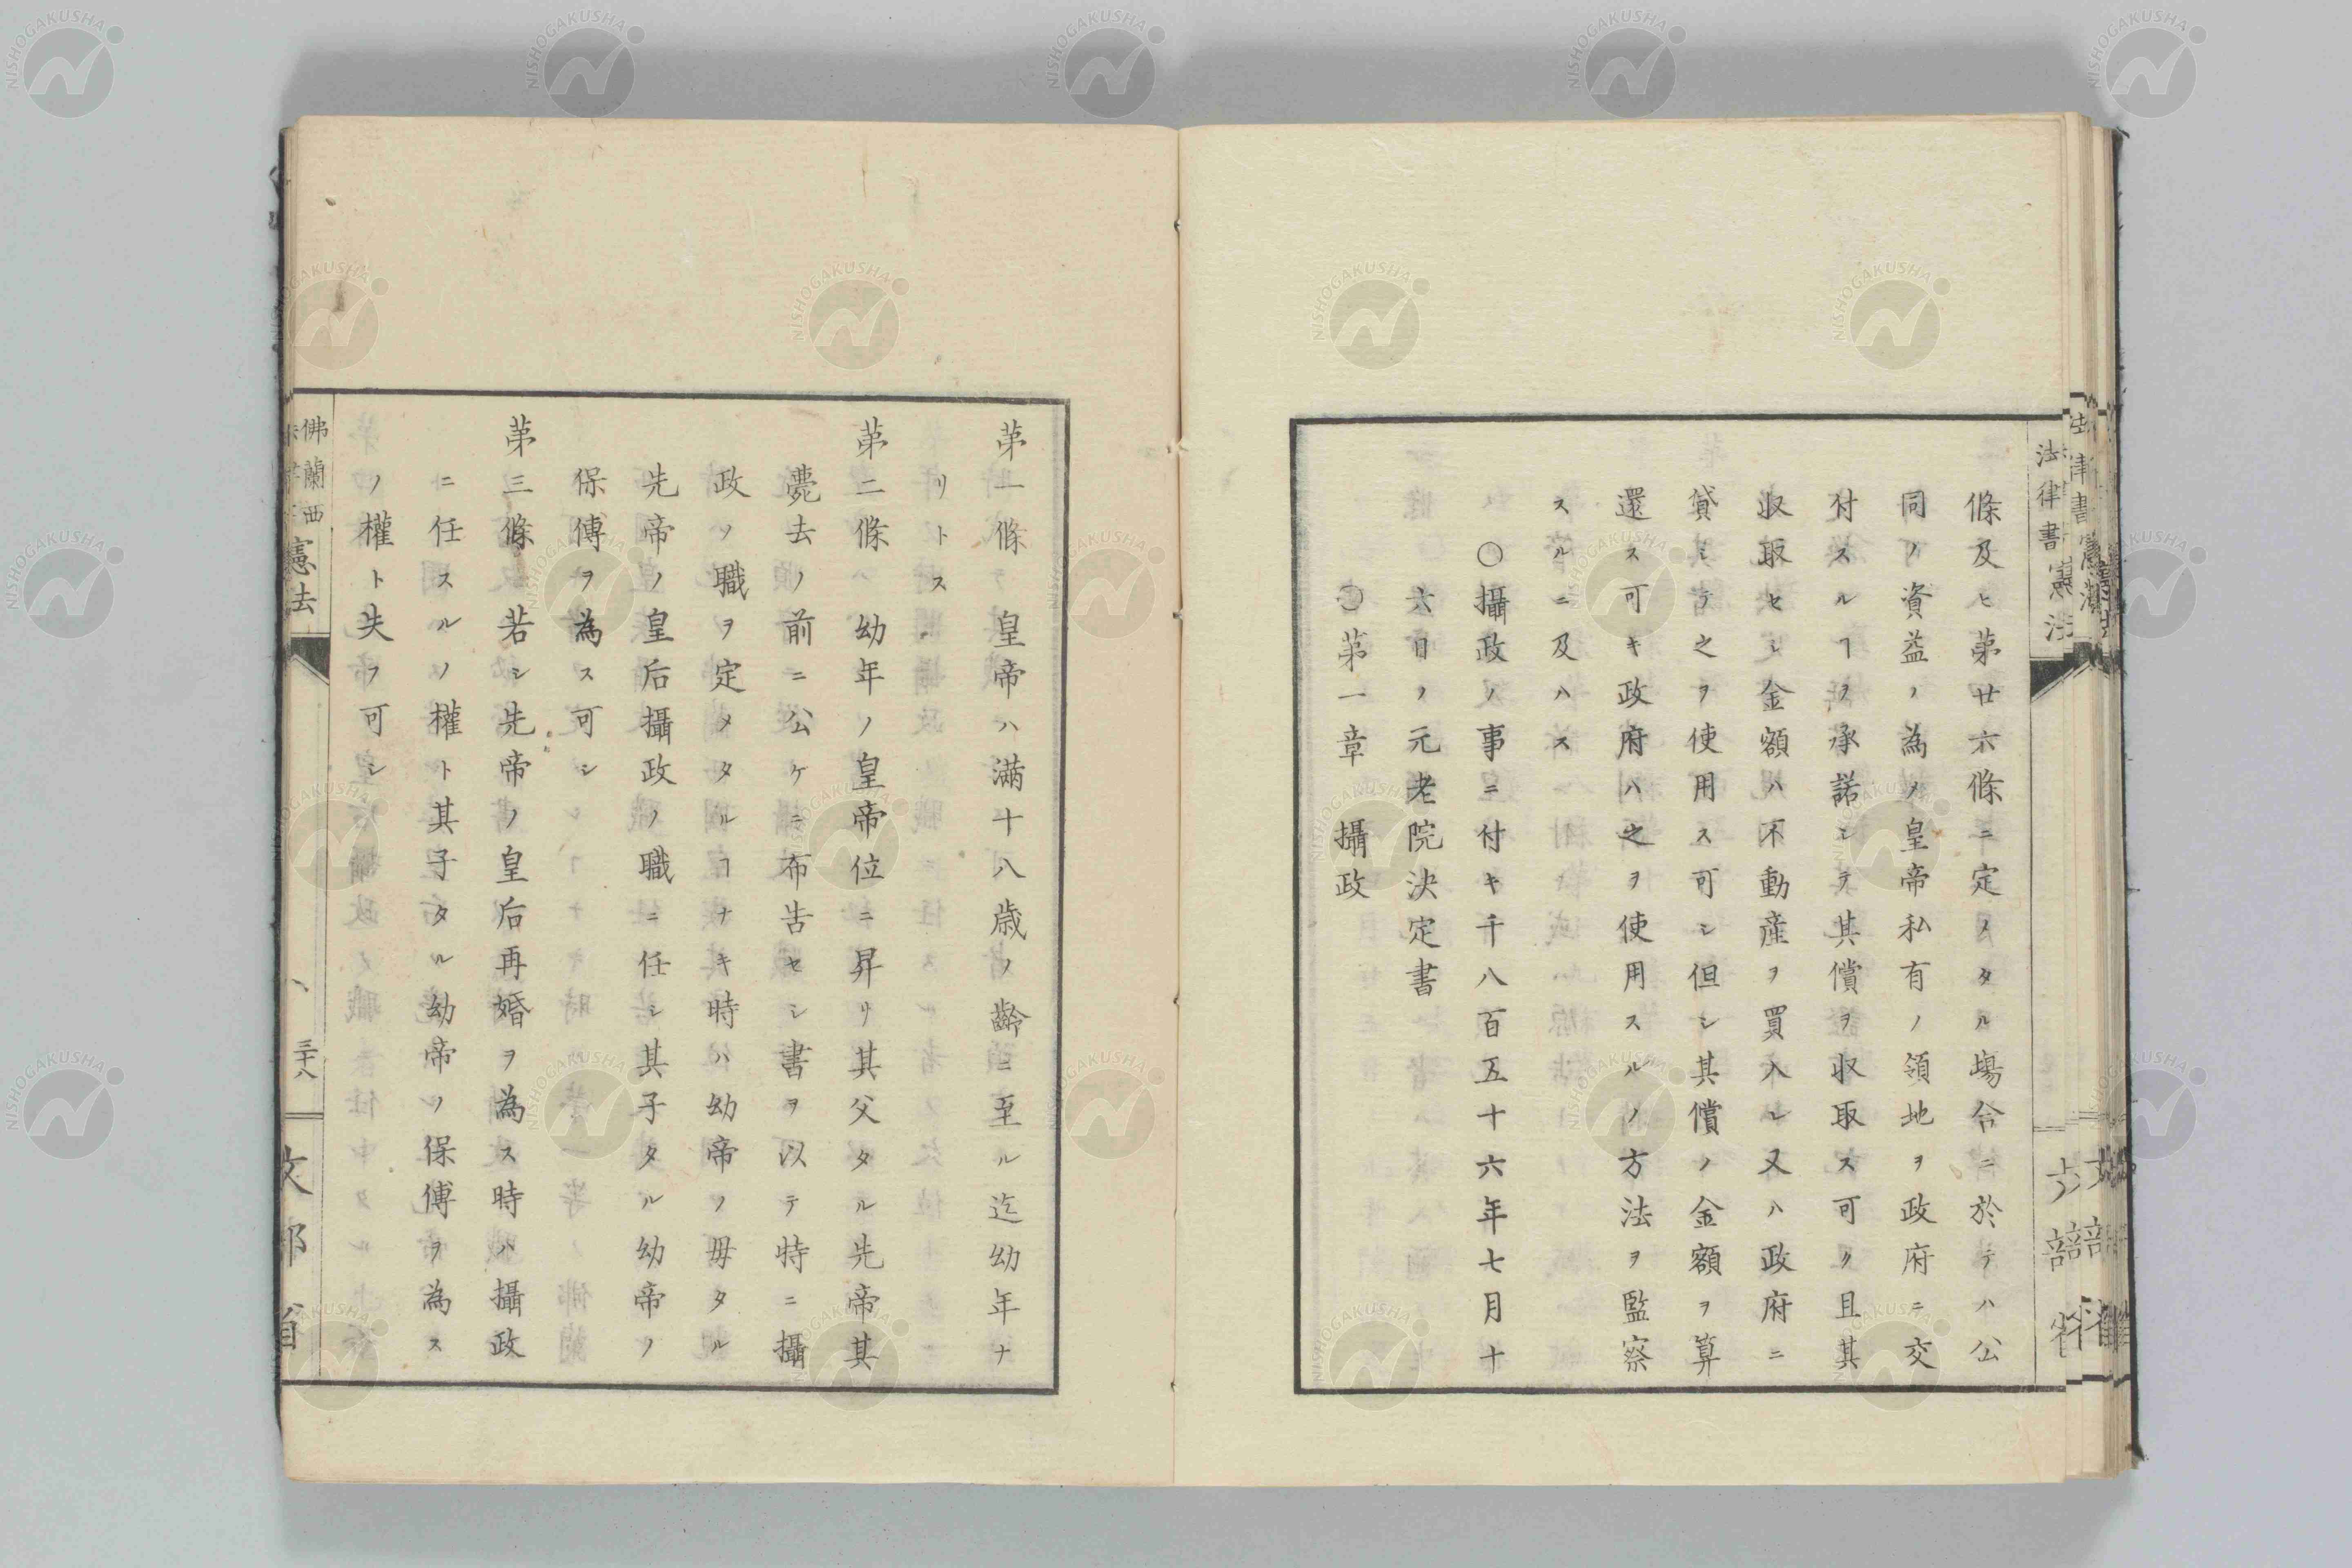 條及ヒ第廿六條ニ定メタル塲合ニ於テハ公
同ノ資益ノ為メ皇帝私有ノ領地ヲ政府ニ交
付スルヿヲ承諾シテ其償ヲ収取ス可ク且其
収取セシ金額ハ不動産ヲ買入レ又ハ政府ニ
貸シテ之ヲ使用ス可シ但シ其償ノ金額ヲ算
還ス可キ政府ハ之ヲ使用スルノ方法ヲ監察
スルニ及ハス
〇攝政ノ事ニ付キ千八百五十六年七月十
六日ノ元老院決定書
〇第一章 攝政
第一條 皇帝ハ滿十八歳ノ齡ニ至ル迄幼年ナ
リトス
第二條 幼年ノ皇帝位ニ昇リ其父タル先帝其
薨去ノ前ニ公ケニ布告セシ書ヲ以テ特ニ攝
政ノ職ヲ定メタルヿナキ時ハ幼帝ノ毋タル
先帝ノ皇后攝政ノ職ニ任シ其子タル幼帝ノ
保傅ヲ為ス可シ
第三條 若シ先帝ノ皇后再婚ヲ為ス時ハ攝政
ニ任スルノ權ト其子タル幼帝ノ保傅ヲ為ス
ノ權ト失フ可シ
佛蘭西
憲法
三十八
文部省
法律書 憲法
NISHOGAKUSHA